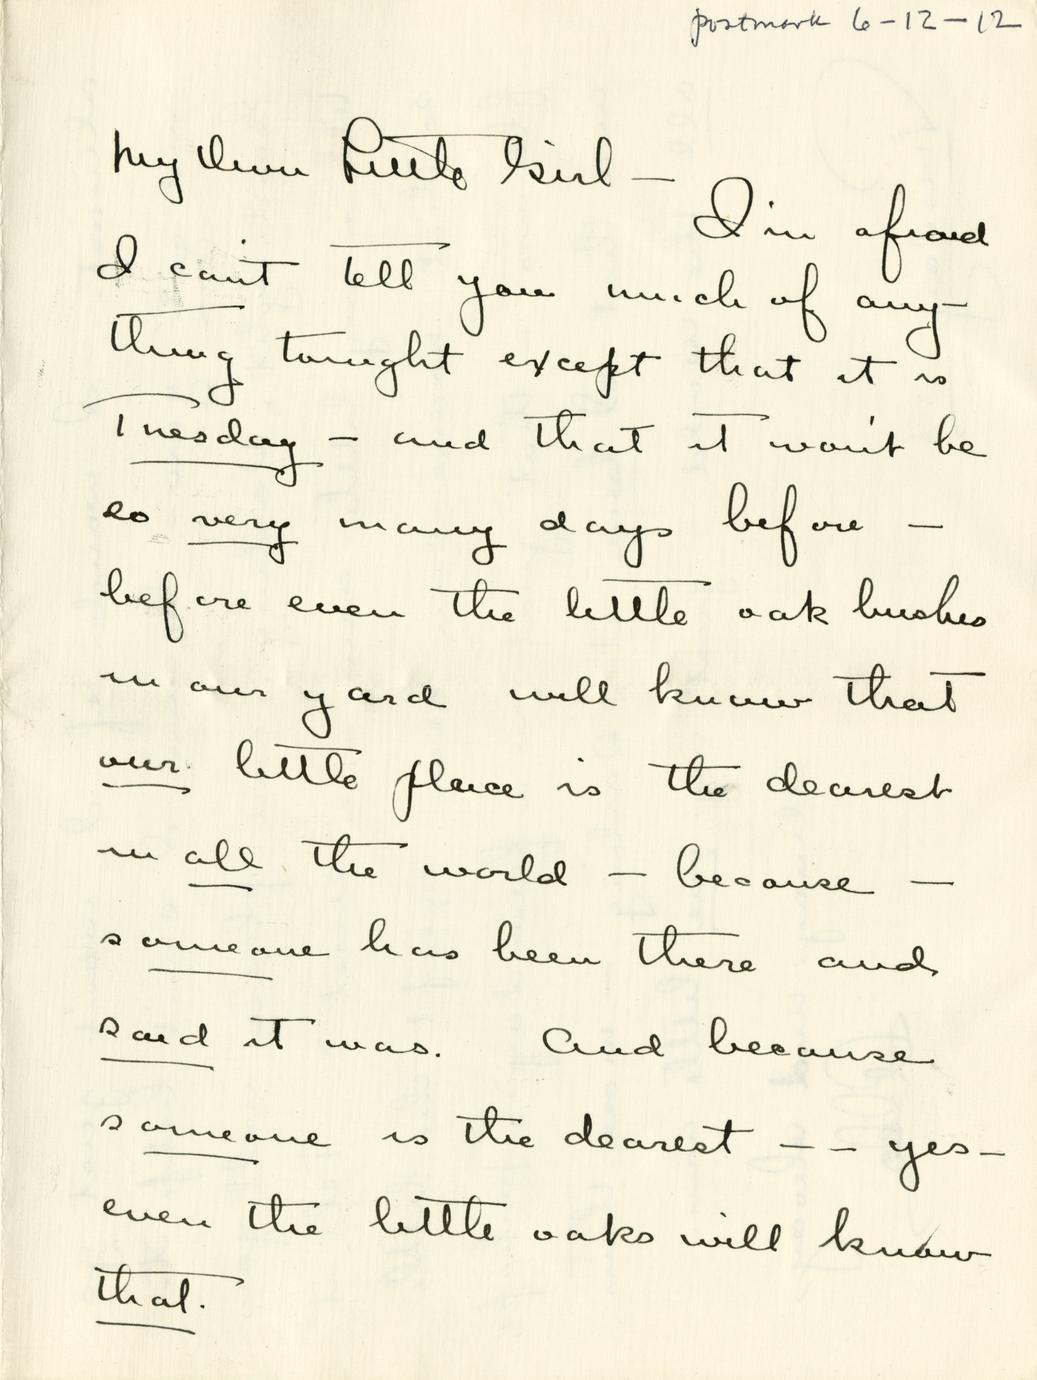 postmark 6-12-12
My Own Little Girl —
I'm afraid
I can't tell you much of any-
thing tonight except that it is
Tuesday — and that it won't be
so very many days before —
before even the little oak bushes
in our yard will know that
our little place is the dearest
in all the world — because —
someone has been there and
said it was. And because
someone is the dearest — — yes —
even the little oaks will know
that.